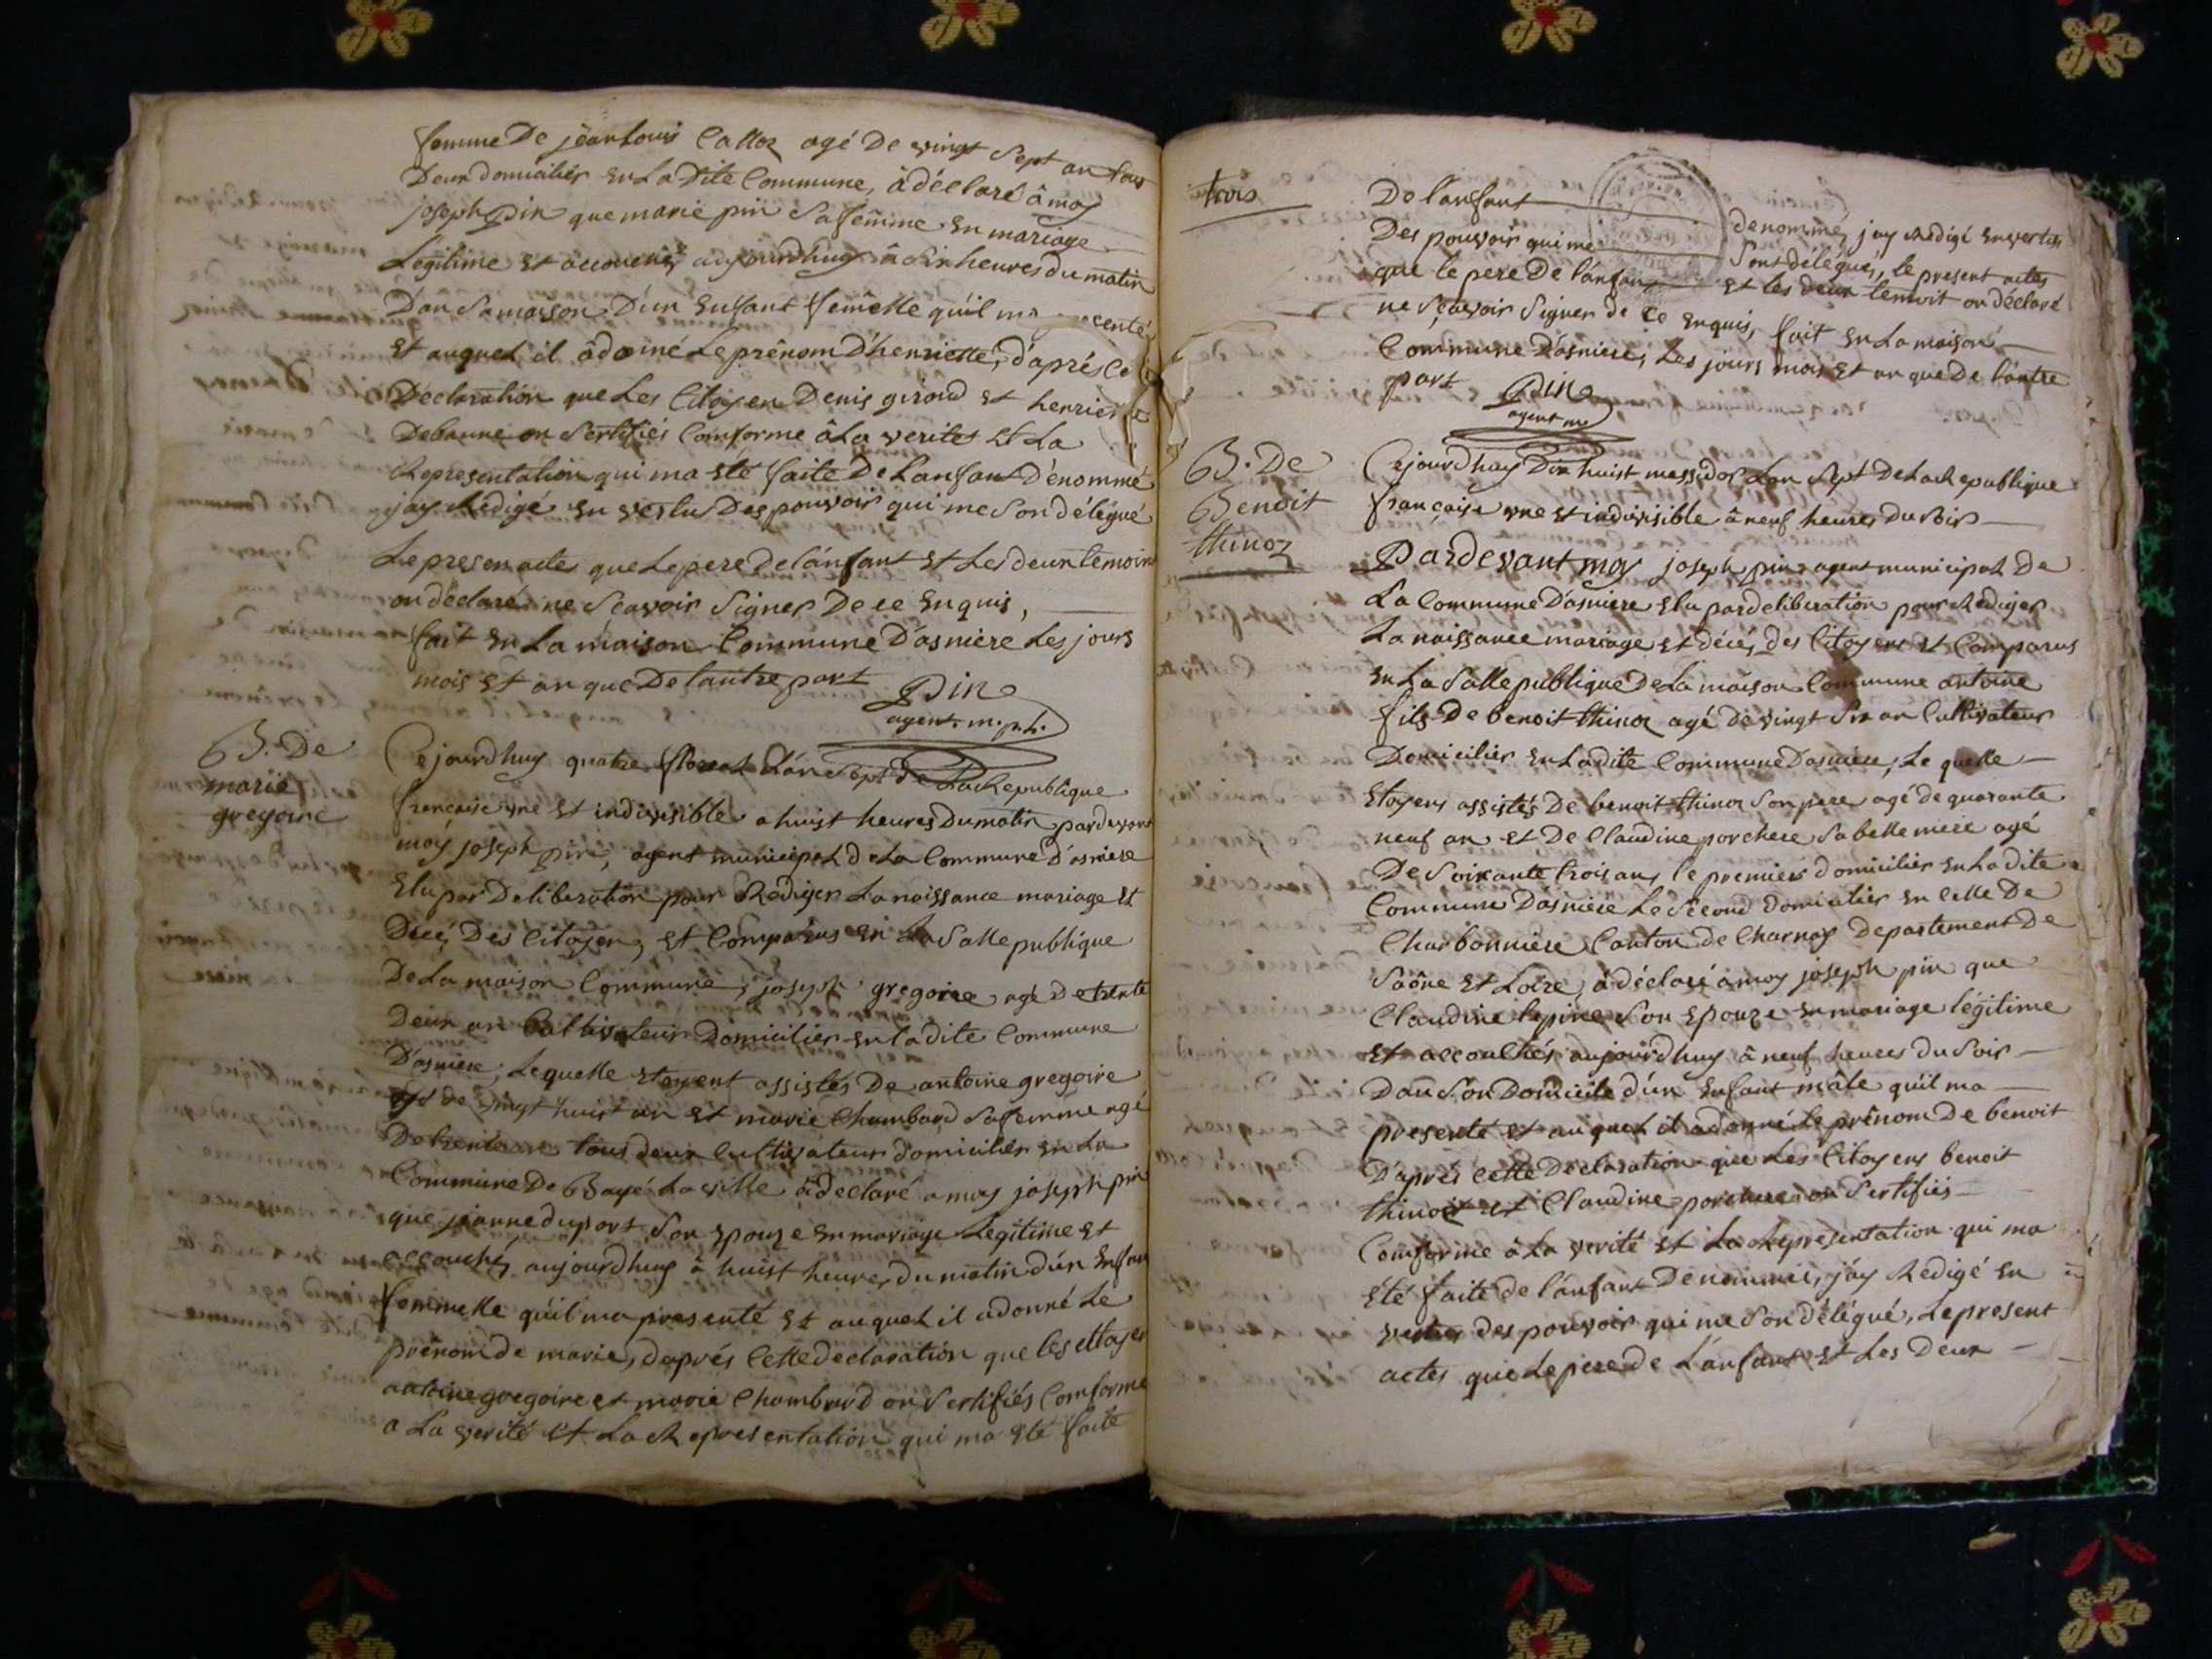 femme De jean Louis Callor agé De vingt Sept an tous
Deux domiciliés en La Dite Commune, à déclaré à moy
joseph pin que marie pin Sa femme en mariage
Legitime et accouchéz aujourdhuy à Six heures du matin
Dan Sa maison D'un Enfant femelle qu'il ma
et auquel il à doiné Le prénom D'henriette, d'aprés Ce
Déclaration que Les Citoyen Denis giroud et
Debanne on Sertifiés Comforme à La verites et La
Representation qui ma eté faite De Lanfant Dénommé
jay Rédigé en vertu Des pouvoir qui me Son délégué
Le presen acte que Le pere De lánfant et Les deux temoin
on declaré ne Sçavoir Signer De ce enquis,
fait en La maison Commune D'asniere Les jours
mois et an que De lautre part
Pin
agent. m. p. l.
B. De
marie
gregoire
Cejourdhuy quatre floreal L'an Sept De La Republique
francaise une et indivisible a huist heures Du matin pardevant
moy joseph pin, agent municipal De La Commune D'asniere
elu par Deliberation pour Rediger La naissance mariage et
Décé, Des Citoyen, et Comparus en La Salle publique
De La maison Commune, joseph gregoire agé De trente
Deux an Cultivateur Domicilier en La dite Commune
D'asniere, Lequelle etoyent assistés De antoine gregoire
agé de vingt huist an et marie Chambard Sa femme agé
De trente an tous deux Cultivateur domiciliés en La
Commune De Bagé La ville à declaré a moy joseph pin
que jeanne duport Son epouze en mariage Legitime et
accouchéz aujourdhuy à huist heures du matin d'un Enfan
femmelle qu'il ma presenté et auquel il adonné Le
prénom de marie, daprés Cette declaration que les
antoine gregoire et marie Chambard on Sertifiés Comforme
a La verité et La Representation qui ma eté faite
trois
De lanfant denommé, jay Redigé en vertus
Des pouvoir qui me Sont délégués, le present actes
que le pere De lánfant et les deux temoit on déclaré
ne Sçavoir Signer de Ce enquis, fait en La maison
Commune D'asniere, Les jours mois et an que De lautre
part
Pin
agent m
B. De
Benoit
thinoz
Cejourdhuy Dix huist messidor Lan Sept De La Republique
française une et indivisible à neuf heures Du Soir
Pardevant moy joseph pin agent municipal De
La Commune D'asniere elu par deliberation pour Rediger
La naissance mariage et décés des Citoyens et Comparus
en La Salle publique De La maison Commune antoine
fils De benoit thinoz agé de vingt Six an Cultivateur
Domicilier en La dite Commune Dasniere, Le quelle
etoyens assistés De benoit thinoz Son pere agé de quarante
neuf an et De Claudine porchere Sa belle mere agé
De Soixante trois ans le premier domicilier en La dite
Commune D'asniere Le Second Domicilier en Celle De
Charbonniere Canton de Charnay Departement De
Saône et Loire, à déclaré à moy joseph pin que
Claudine lepine Son epouze en mariage légitime
et accouchés aujourdhuy à neuf heures du Soir
Dan Son Domicile d'un Enfant mâle qu'il ma
presenté et auquel il adonné Le prénom De benoit
D'aprés Cette Declaration que Les Citoyens benoit
thinoz et Claudine porchere on Sertifiés
Comforme à La verité et La Representation qui ma
été faite de l'anfant Denommé, jay Redigé en
vertus des pouvoir qui me Son délégué, Le present
actes que Le pere de Lánfant et Les Deux